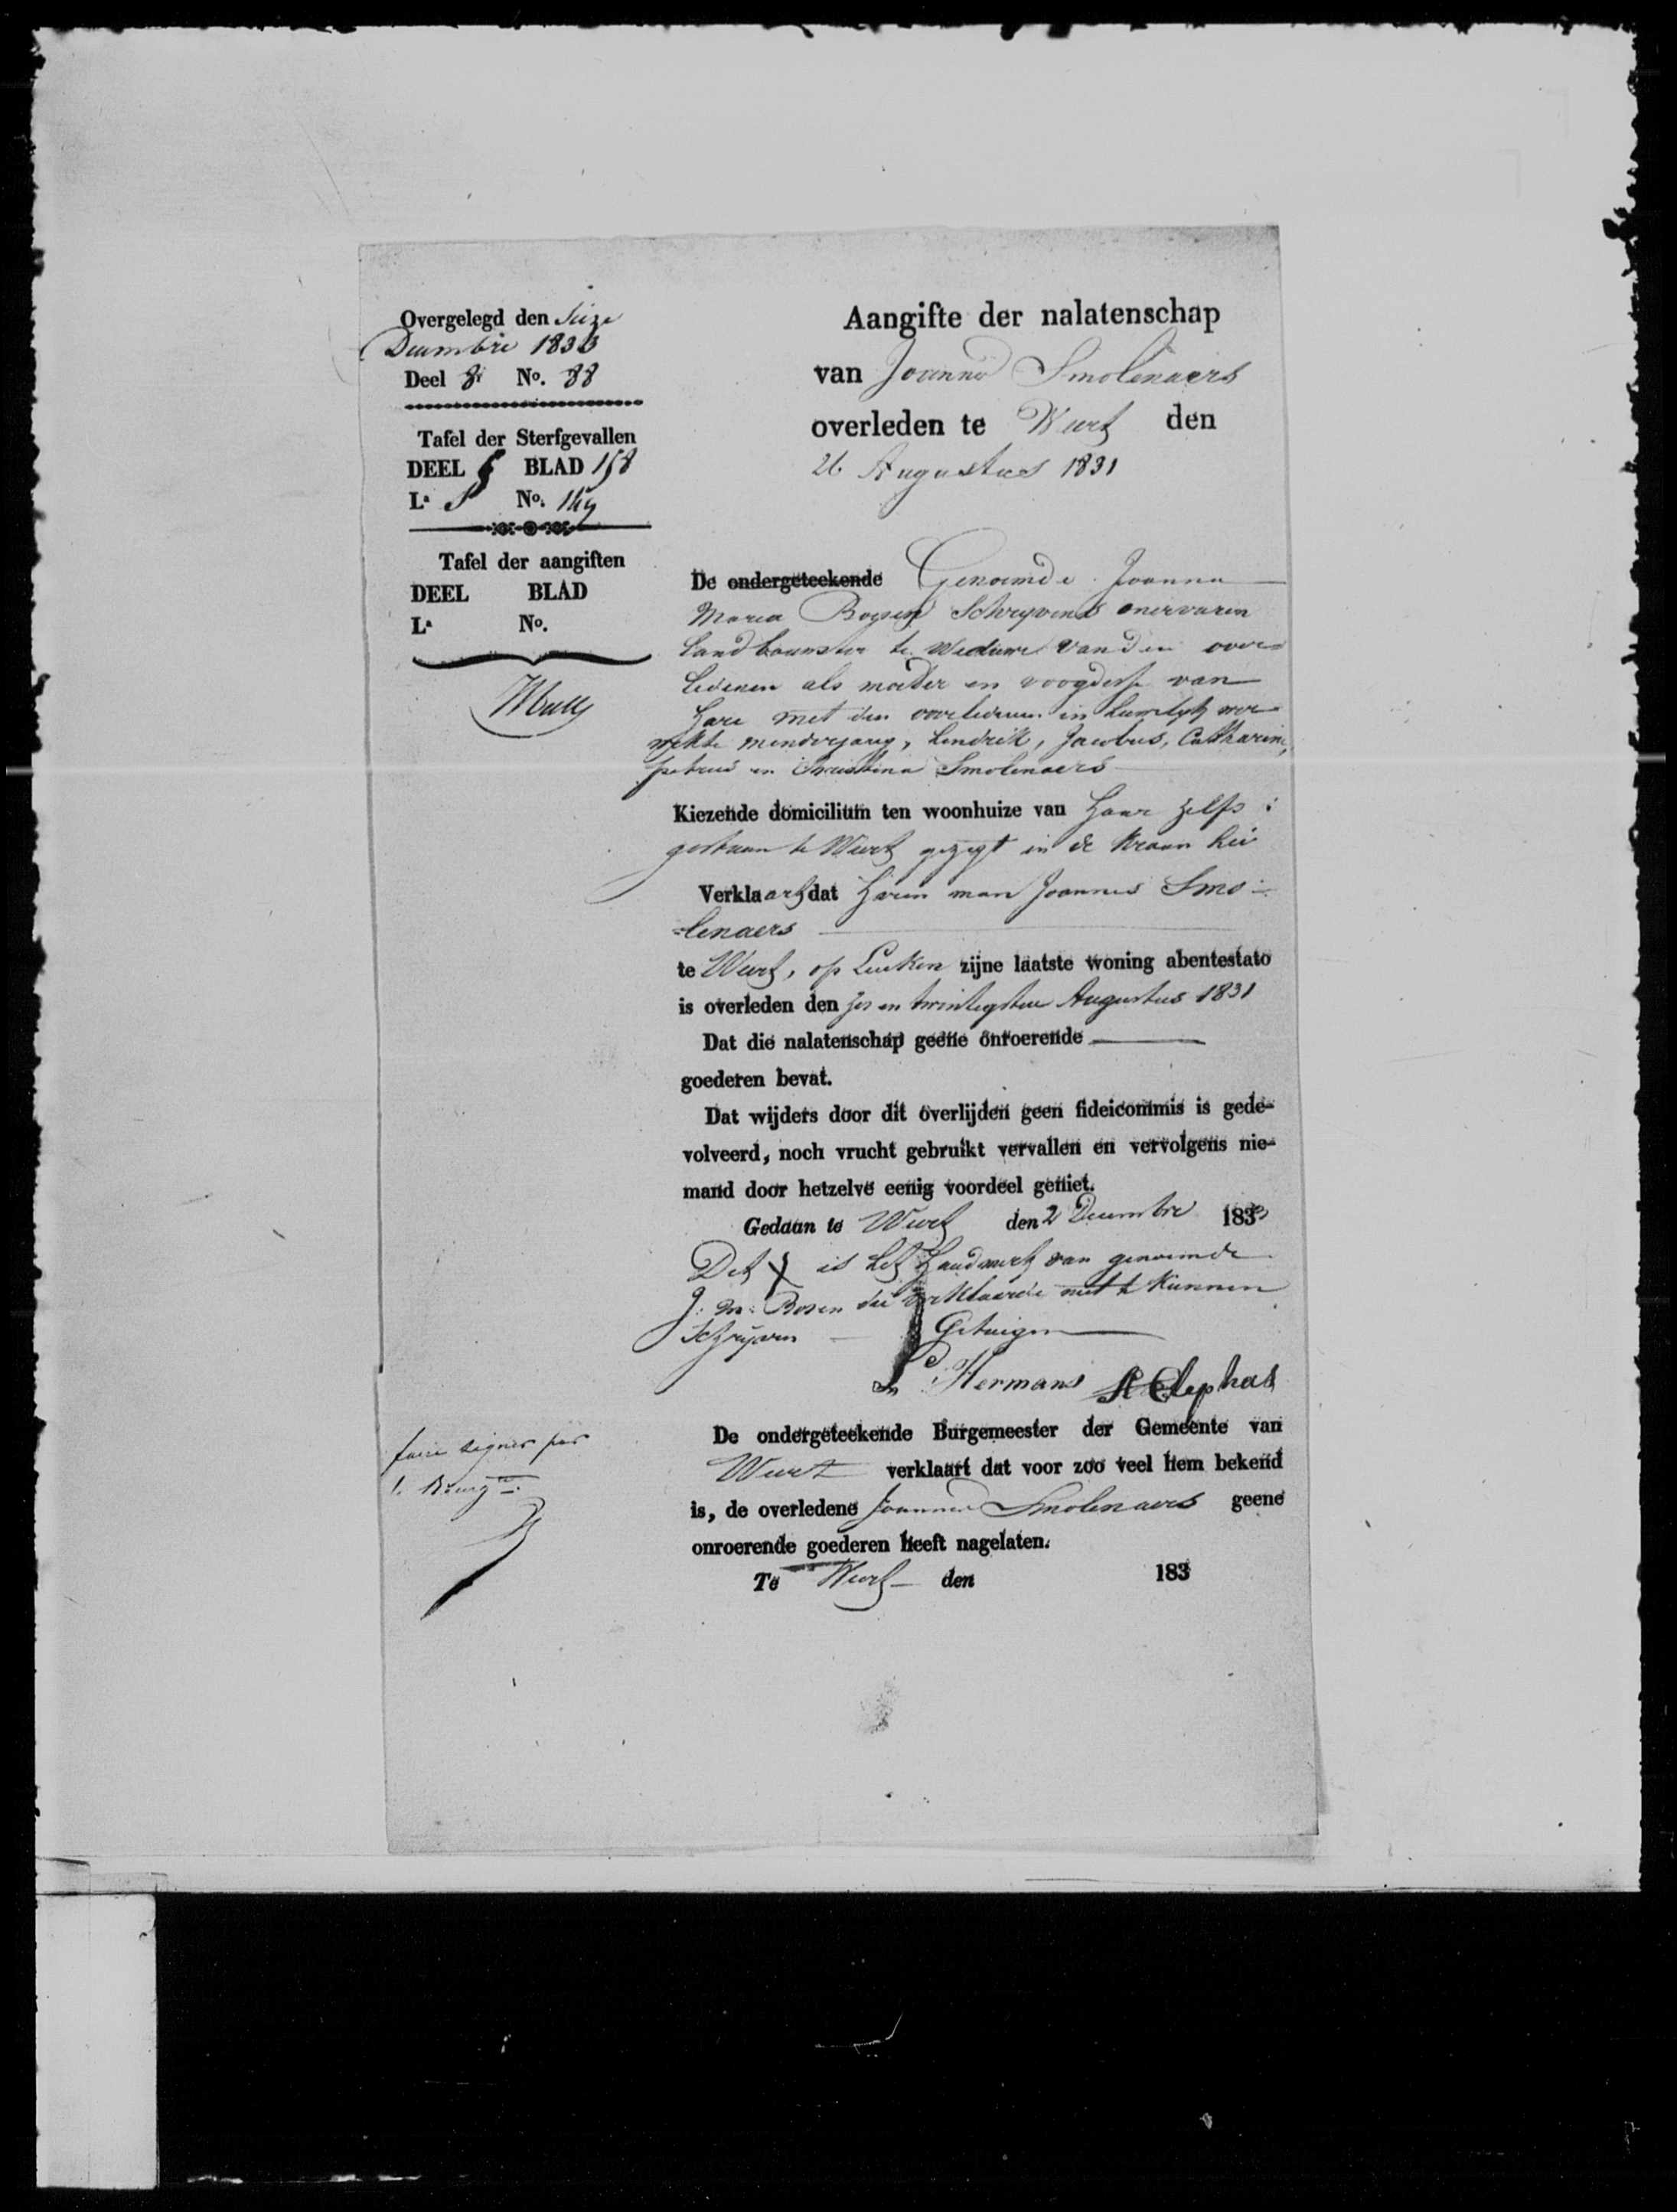 Overgelegd den Seize
Decembre 1833
Deel 8 No. 88
Tafel der Sterfgevallen
DEEL 5 BLAD 158
La S No. 149
Tafel der aangiften
DEEL BLAD
La No.
Aangifte der nalatenschap
van Joannes Smolenaers
overleden te Weert den
26 Augustus 1831
De ondergeteekende Genoemde Joanna
Maria Boysen Schryvens onervaren
Landbouwster te Weduwe van den over
ledenen als moeder en voogdesse van
hare met den overledenen in huwelyk ver
wekte minderjarig, hendrik, Jacobus, Catharina,
petrus en Christina Smolenaers
Kiezende domicilium ten woonhuize van haar zelfs
gestaan te Weert gezegt in de
Verklaart dat haren man Joannes Smo-
=lenaers
te Weert, op Leuken zijne laatste woning abentestato
is overleden den zes en twintigsten Augustus 1831
Dat die nalatenschap geene onroerende
goederen bevat.
Dat wijders door dit overlijden geen fideicommis is gede-
volveerd, noch vrucht gebruikt vervallen en vervolgens nie-
mand door hetzelve eenig voordeel geniet.
Gedaan te Weert den 2 Decembre 1833
Dit X is het handmerk van genoemde
J. M. Bosen die verklaerde niet te kunnen
Schryven Getuigen
P Hermans A Clephas
De ondergeteekende Burgemeester der Gemeente van
Weert verklaart dat voor zoo veel hem bekend
is, de overledene Joannes Smolenaers geene
onroerende goederen heeft nagelaten.
Te Weert den 183
faire signer par
l. Bourgm.